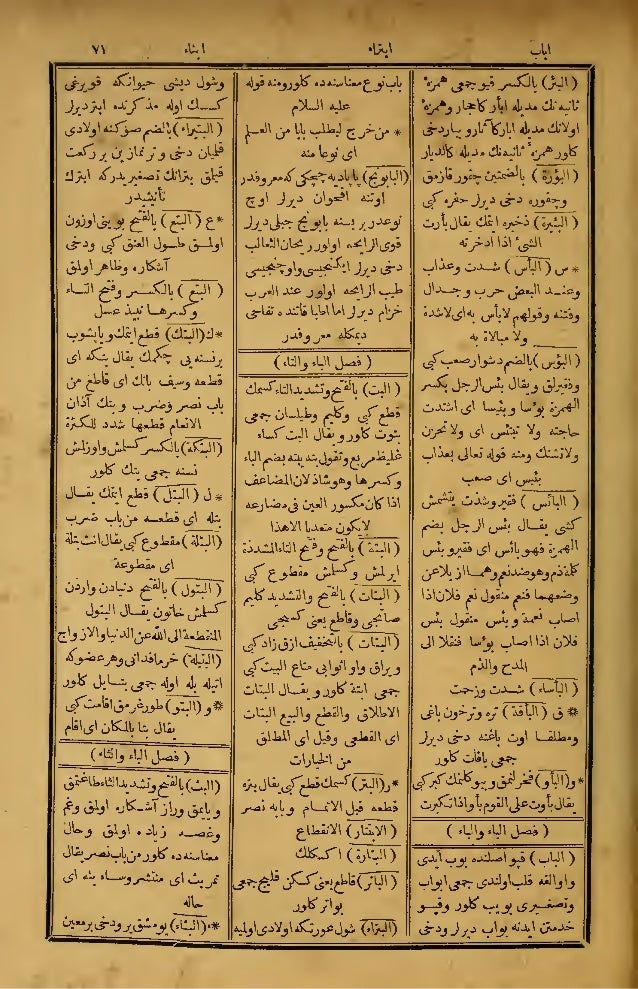 اباب ابتراء ابثاء ٧١
( البئر ) بالكسر قيو جمعى همزۀ
ثانيه نك مديله ابآر كاحجار و همزۀ
اولانك مديله ابار كآثار و بيار دخى
كلور همزۀ ثانيه نك مديله كالديار
( البؤرة ) بالضمتين چقور قازمق
وچقوره دخى ديرلر حفره كبى
( البئيرة ) ذخيره ايتمك يقال بأرت
الشئ اذا ادخرته
* س ( البأس ) شدت وعذاب
وعند البعض حرب وجدال
وفتنه وقولهم لا بأس به اى لا شدة
ولا مبالاة به
( البؤس ) بالضم دشوار صعب كبى
وفقيرلق ويقال بئس الرجل بكسر
الهمزة بوسا وبئيسا اى اشتدت
حاجته ولا تبتئس اى ولا تحزن
ولا تشتك ومنه قوله تعالى بعذاب
بئيس اى صعب
( البائس ) فقير وشدت يتشمش
كشى يقال بئس الرجل بضم
الهمزة فهو بائس اى فقير وبئس
كلمة ذم وهو ضد نعم وهما ازيلا عن
وضعهما فنعم منقول نعم فلان اذا
اصاب نعمة وبئس منقول بئس
فلان اذا اصاب بؤسا فنقلا الى
المدح والذم
( البأساء ) شدت وزحمت
* ق ( الباقة ) تره وترخون باغى
ومطلقا اوت باغنه دخى ديرلر
جمعى باقات كلور
* و ( البأو ) فخر ايتمك وبيوكلنمك كبر كبى
يقال بأوت على القوم بأوا اذا تكبرت
( فصل الباء والباء )
( الباب ) قپو اصلنده بوب ايدى
واو الفه قلب اولندى جمعى ابواب
وتصغيرى بويب كلور وقپو
خدمتن ايدنه بواب ديرلر ودخى
باب نوع معناسنه ده كلور ومنه قوله
عليه السلام
* من خرج ليطلب بابا من العلم
اى نوعا منه
( البابونج ) پاپاديه چچكى كه معروفدر
اوتنه اقحوان ديرلر اوچ
نوعدر برسنه بابونج جبلى ديرلر
قوى الرايحه اولور ريحان الثعالب
دخى ديرلر ايكنجيسى واوچنجيسى
طيب الرايحه اولور عند العرب
خزام ديرلر اما اطبا قاتنده تفاحى
ديمكله معروفدر
( فصل الباء والتاء )
( البت ) بالفتح وتشديد التاء كسمك
قطع كبى وكليم وطيلسان جمعى
بتوت كلور ويقال البت كساء
غليظ مربع وتقول بته يبته بضم الباء
وكسرها وهو شاذ لان المضاعف
اذا كان مكسور العين فى مضارعه
لا يكون متعديا الا هذا
( البتة ) بالفتح وفتح التاء المشددة
ايرلمش وكسلمش مقطوع كبى
( البتات ) بالفتح والتشديد كليم
صاتيجى وقاطع يعنى كسيجى
( البتات ) بالتخفيف ازق زاد كبى
ويراق واو اثوابى متاع البيت كبى
جمعى ابتة كلور ويقال البتات
الاطلاق والقطع والبيع البتات
اى القطعى وقيل اى المطلق
من الخيارات
* ر ( البتر ) كسمك قطع كبى يقال بتره
قطعه قبل الاتمام وبابه نصر
( الابتتار ) الانقطاع
( البتارة ) اكسكلك
( الباتر ) قاطع يعنى كسكن قليج جمعى
بواتر كلور
( البتراء ) شول عورتكه اولادى اولميه
وشول ديشى حيوانكه قويرغى
كسك اوله مذكرنده ابتر ديرلر
( البتيراء ) بالضم صوكنه اولادى
قليان دخى وتر نمازين بر ركعت
قيلمق بترانك تصغيريدر كه ابترك
تأنيثيدر
* ع ( البتع ) بالفتح بوينى اوزون
اولمق طول العنق كبى ودخى
آشكاره وظاهر اولمق
( البتع ) بالكسر وفتح التاء
وكسرها نبيذ عسل
* ك ( البتك ) قطع ايتمك وياپشوب
برنسنه يى چكمك يقال بتكه اى
قطعه وسيف باتك اى قاطع من
باب نصر وضرب وبتك آذان
الانعام قطعها شدد للكثرة
( البتكة ) بالكسر كسلمش واوزلمش
نسنه جمعى بتك كلور
* ل ( البتل ) قطع ايتمك يقال
بتله اى قطعه من باب ضرب
( البتلة ) مقطوع كبى يقال انت بتلة
اى مقطوعة
( البتول ) بالفتح دنيادن واردن
كسلمش خاتون يقال البتول
المنقطعة الى الله عن الدنيا والازواج
( البتيلة ) خرما فدانى وهر عضو كه
اتيله بله اوله جمعى بتايل كلور
* و ( البتو ) طورغرمق اقامت كبى
يقال بتا بالمكان اى اقام
( فصل الباء والثاء )
( البث ) بالفتح وتشديد الثاء طاغتمق
ويايمق وراز آشكاره اولمق وغم
وغصه زياده اولمق وحال
معناسنه ده كلور من باب نصر يقال
تمر بث اى منتشر وساء بثه اى
حاله
* ء ( البثاء ) يومشق ير ودخى بر معين